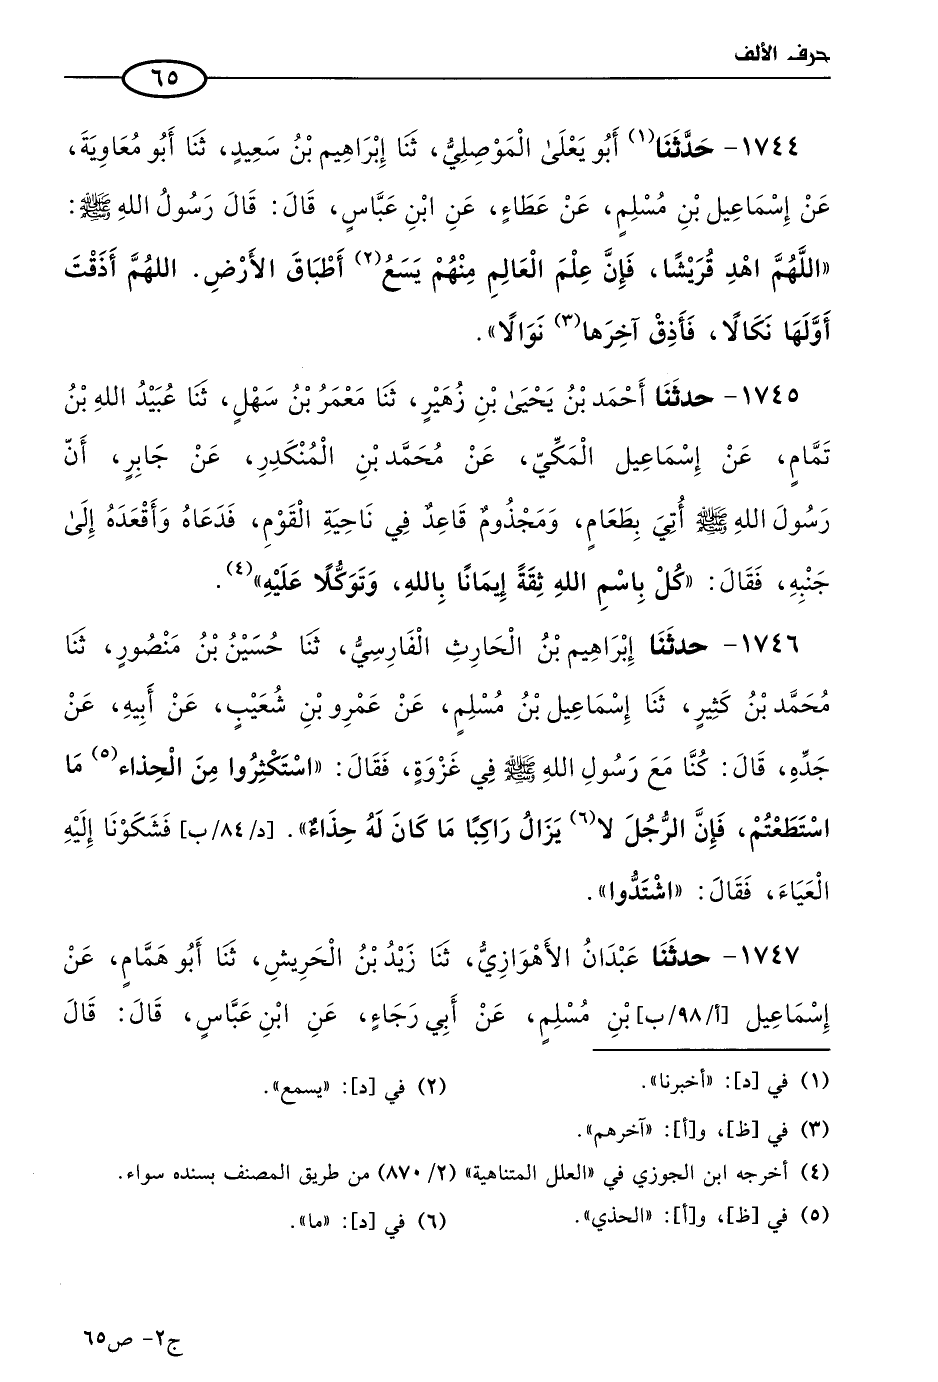 حرف الألف
٦٥
١٧٤٤- حَدَّثَنَا(١) أَبُو يَعْلَىٰ الْمَوْصِلِيُّ، ثَنَا إِبْرَاهِيم بْنُ سَعِيدٍ، ثَنَا أَبُو مُعَاوِيَةَ،
عَنْ إِسْمَاعِيل بْنِ مُسْلِمٍ، عَنْ عَطَاءٍ، عَنِ ابْنِ عَبَّاسٍ، قَالَ: قَالَ رَسُولُ اللهِ ﷺ:
«اللَّهُمَّ اهْدِ قُرَيْشًا، فَإِنَّ عِلْمَ الْعَالِمِ مِنْهُمْ يَسَعُ(٢) أَطْبَاقَ الأَرْضِ. اللهُمَّ أَذَقْتَ
أَوَّلَهَا نَكَالًا، فَأَذِقْ آخِرَها(٣) نَوَالًا».
١٧٤٥- حدثَنَا أَحْمَد بْنُ يَحْيَىٰ بْنِ زُهَيْرٍ، ثَنَا مَعْمَرُ بْنُ سَهْلٍ، ثَنَا عُبَيْدُ اللهِ بْنُ
تَمَّامٍ، عَنْ إِسْمَاعِيل الْمَكِّيّ، عَنْ مُحَمَّد بْنِ الْمُنْكَدِرِ، عَنْ جَابِرٍ، أَنّ
رَسُولَ اللهِ ﷺ أُتِيَ بِطَعَامٍ، وَمَجْذُومٌ قَاعِدٌ فِي نَاحِيَةِ الْقَوْمِ، فَدَعَاهُ وَأَقْعَدَهُ إِلَىٰ
جَنْبِهِ، فَقَالَ: «كُلْ بِاسْمِ اللهِ ثِقَةً إِيمَانًا بِاللهِ، وَتَوَكُّلًا عَلَيْهِ»(٤).
١٧٤٦- حدثَنَا إِبْرَاهِيم بْنُ الْحَارِثِ الْفَارِسِيُّ، ثَنَا حُسَيْنُ بْنُ مَنْصُورٍ، ثَنَا
مُحَمَّد بْنُ كَثِيرٍ، ثَنَا إِسْمَاعِيل بْنُ مُسْلِمٍ، عَنْ عَمْرِو بْنِ شُعَيْبٍ، عَنْ أَبِيهِ، عَنْ
جَدِّهِ، قَالَ: كُنَّا مَعَ رَسُولِ اللهِ ﷺ فِي غَزْوَةٍ، فَقَالَ: «اسْتَكْثِرُوا مِنَ الْحِذاء(٥) مَا
اسْتَطَعْتُمْ، فَإِنَّ الرُّجُلَ لا(٦) يَزَالُ رَاكِبًا مَا كَانَ لَهُ حِذَاءٌ». [د/٨٤/ب] فَشَكَوْنَا إِلَيْهِ
الْعَيَاءَ، فَقَالَ: «اشْتَدُّوا».
١٧٤٧- حدثَنَا عَبْدَانُ الأَهْوَازِيُّ، ثَنَا زَيْدُ بْنُ الْحَرِيشِ، ثَنَا أَبُو هَمَّامٍ، عَنْ
إِسْمَاعِيل [أ/٩٨/ب] بْنِ مُسْلِمٍ، عَنْ أَبِي رَجَاءٍ، عَنِ ابْنِ عَبَّاسٍ، قَالَ: قَالَ
(١) في [د]: «أخبرنا». (٢) في [د]: «يسمع».
(٣) في [ظ]، و[أ]: «آخرهم».
(٤) أخرجه ابن الجوزي في «العلل المتناهية» (٢/ ٨٧٠) من طريق المصنف بسنده سواء.
(٥) في [ظ]، و[أ]: «الحذي». (٦) في [د]: «ما».
ج٢- ص٦٥